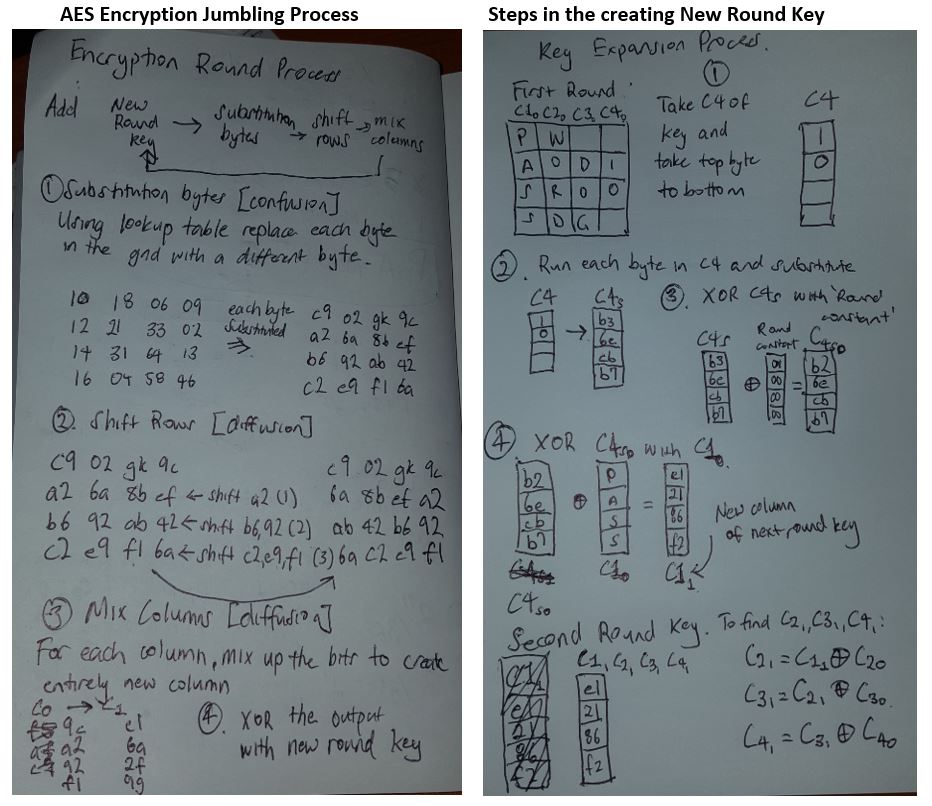 AES Encryption Jumbling Process
Encryption Round Process
Add New Round key → substitution bytes → shift rows → mix columns
① Substitution bytes [confusion]
Using lookup table replace each byte
in the grid with a different byte.
10 18 06 09 each byte c9 02 gk 9c
12 21 33 02 substituted a2 6a 8b ef
14 31 64 13 ⇒ b6 92 ab 42
16 04 58 46 c2 e9 f1 6a
②. Shift Rows [diffusion]
c9 02 gk 9c c9 02 gk 9c
a2 6a 8b ef ← shift a2 (1) 6a 8b ef a2
b6 92 ab 42 ← shift b6,92 (2) ab 42 b6 92
c2 e9 f1 6a ← shift c2,e9,f1 (3) 6a c2 e9 f1
③ Mix Columns [diffusion]
For each column, mix up the bits to create
entirely new column
C0 →
9c e1
a2 6a
92 2f
f1 99
④. XOR the output
with new round key
Steps in the creating New Round Key
Key Expansion Process.
First Round:
C1₀ C2₀ C3₀ C4₀
P W
A O D 1
S R 0 0
S D G
①
Take C4 of
key and
take top byte
to bottom
C4
1
0
②. Run each byte in C4 and substitute
C4 → C4s
1 b3
0 6e
cb
b7
③. XOR C4s with 'Round
constant'
C4s ⊕ Round constant = C4so
b3 01 b2
6e 00 6e
cb 00 cb
b7 00 b7
④ XOR C4so with C1₀.
b2 ⊕ P = e1
6e A 21
cb S 86
b7 S f2
C1₀ C1₁
C4so
New column
of next round key
Second Round Key. To find C2₁, C3₁, C4₁:
C1, C2, C3, C4,
e1
21
86
f2
C2₁ = C1₁ ⊕ C2₀
C3₁ = C2₁ ⊕ C3₀.
C4₁ = C3₁ ⊕ C4₀